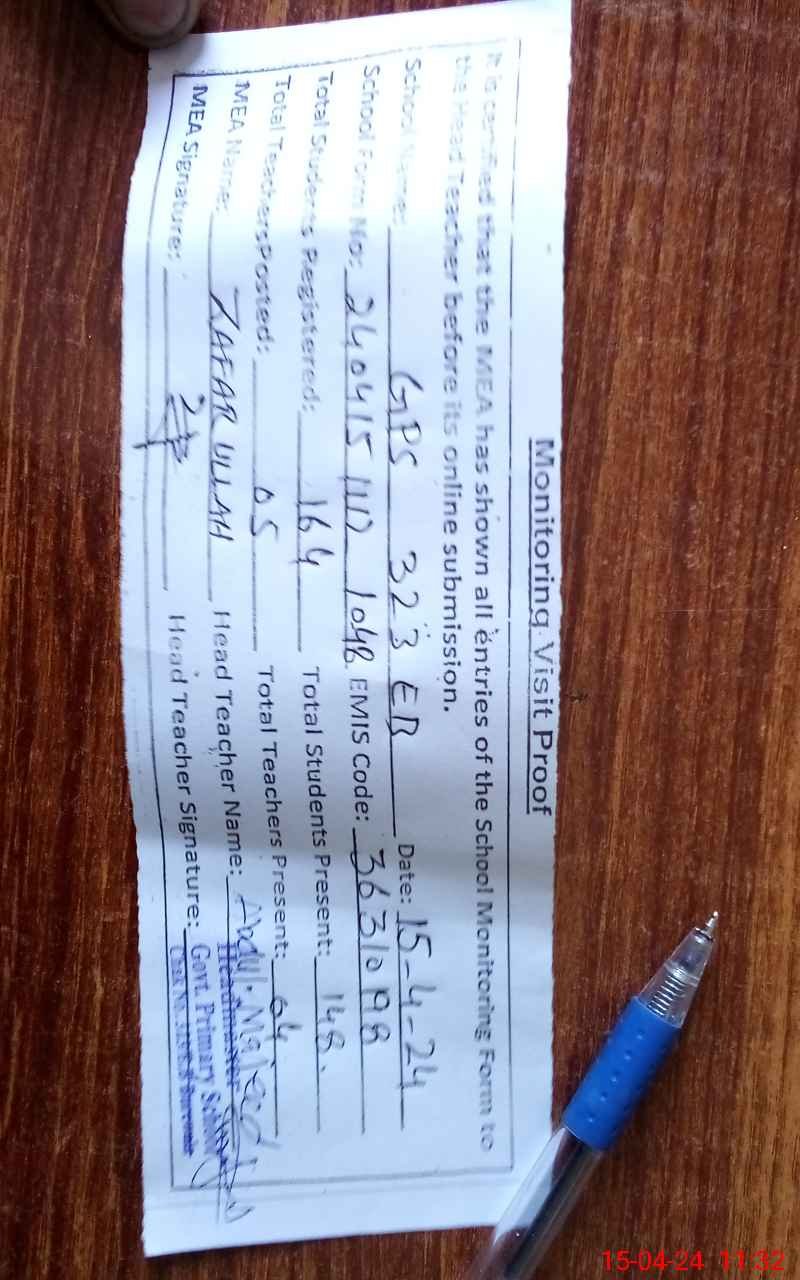 Monitoring Visit Proof
It is certified that the MEA has shown all entries of the School Monitoring Form to
the Head Teacher before its online submission.
School Name: GPS 323 EB Date: 15-4-24
School Form No: 240415 1048 EMIS Code: 36310198
Total Students Registered: 164 Total Students Present: 148.
Total Teachers Posted: 05 Total Teachers Present: 04
MEA Name: ZAFAR ULLAH Head Teacher Name: Abdul Majeed
MEA Signature: Head Teacher Signature:
Headmaster
Govt. Primary School
15-04-24 11:32